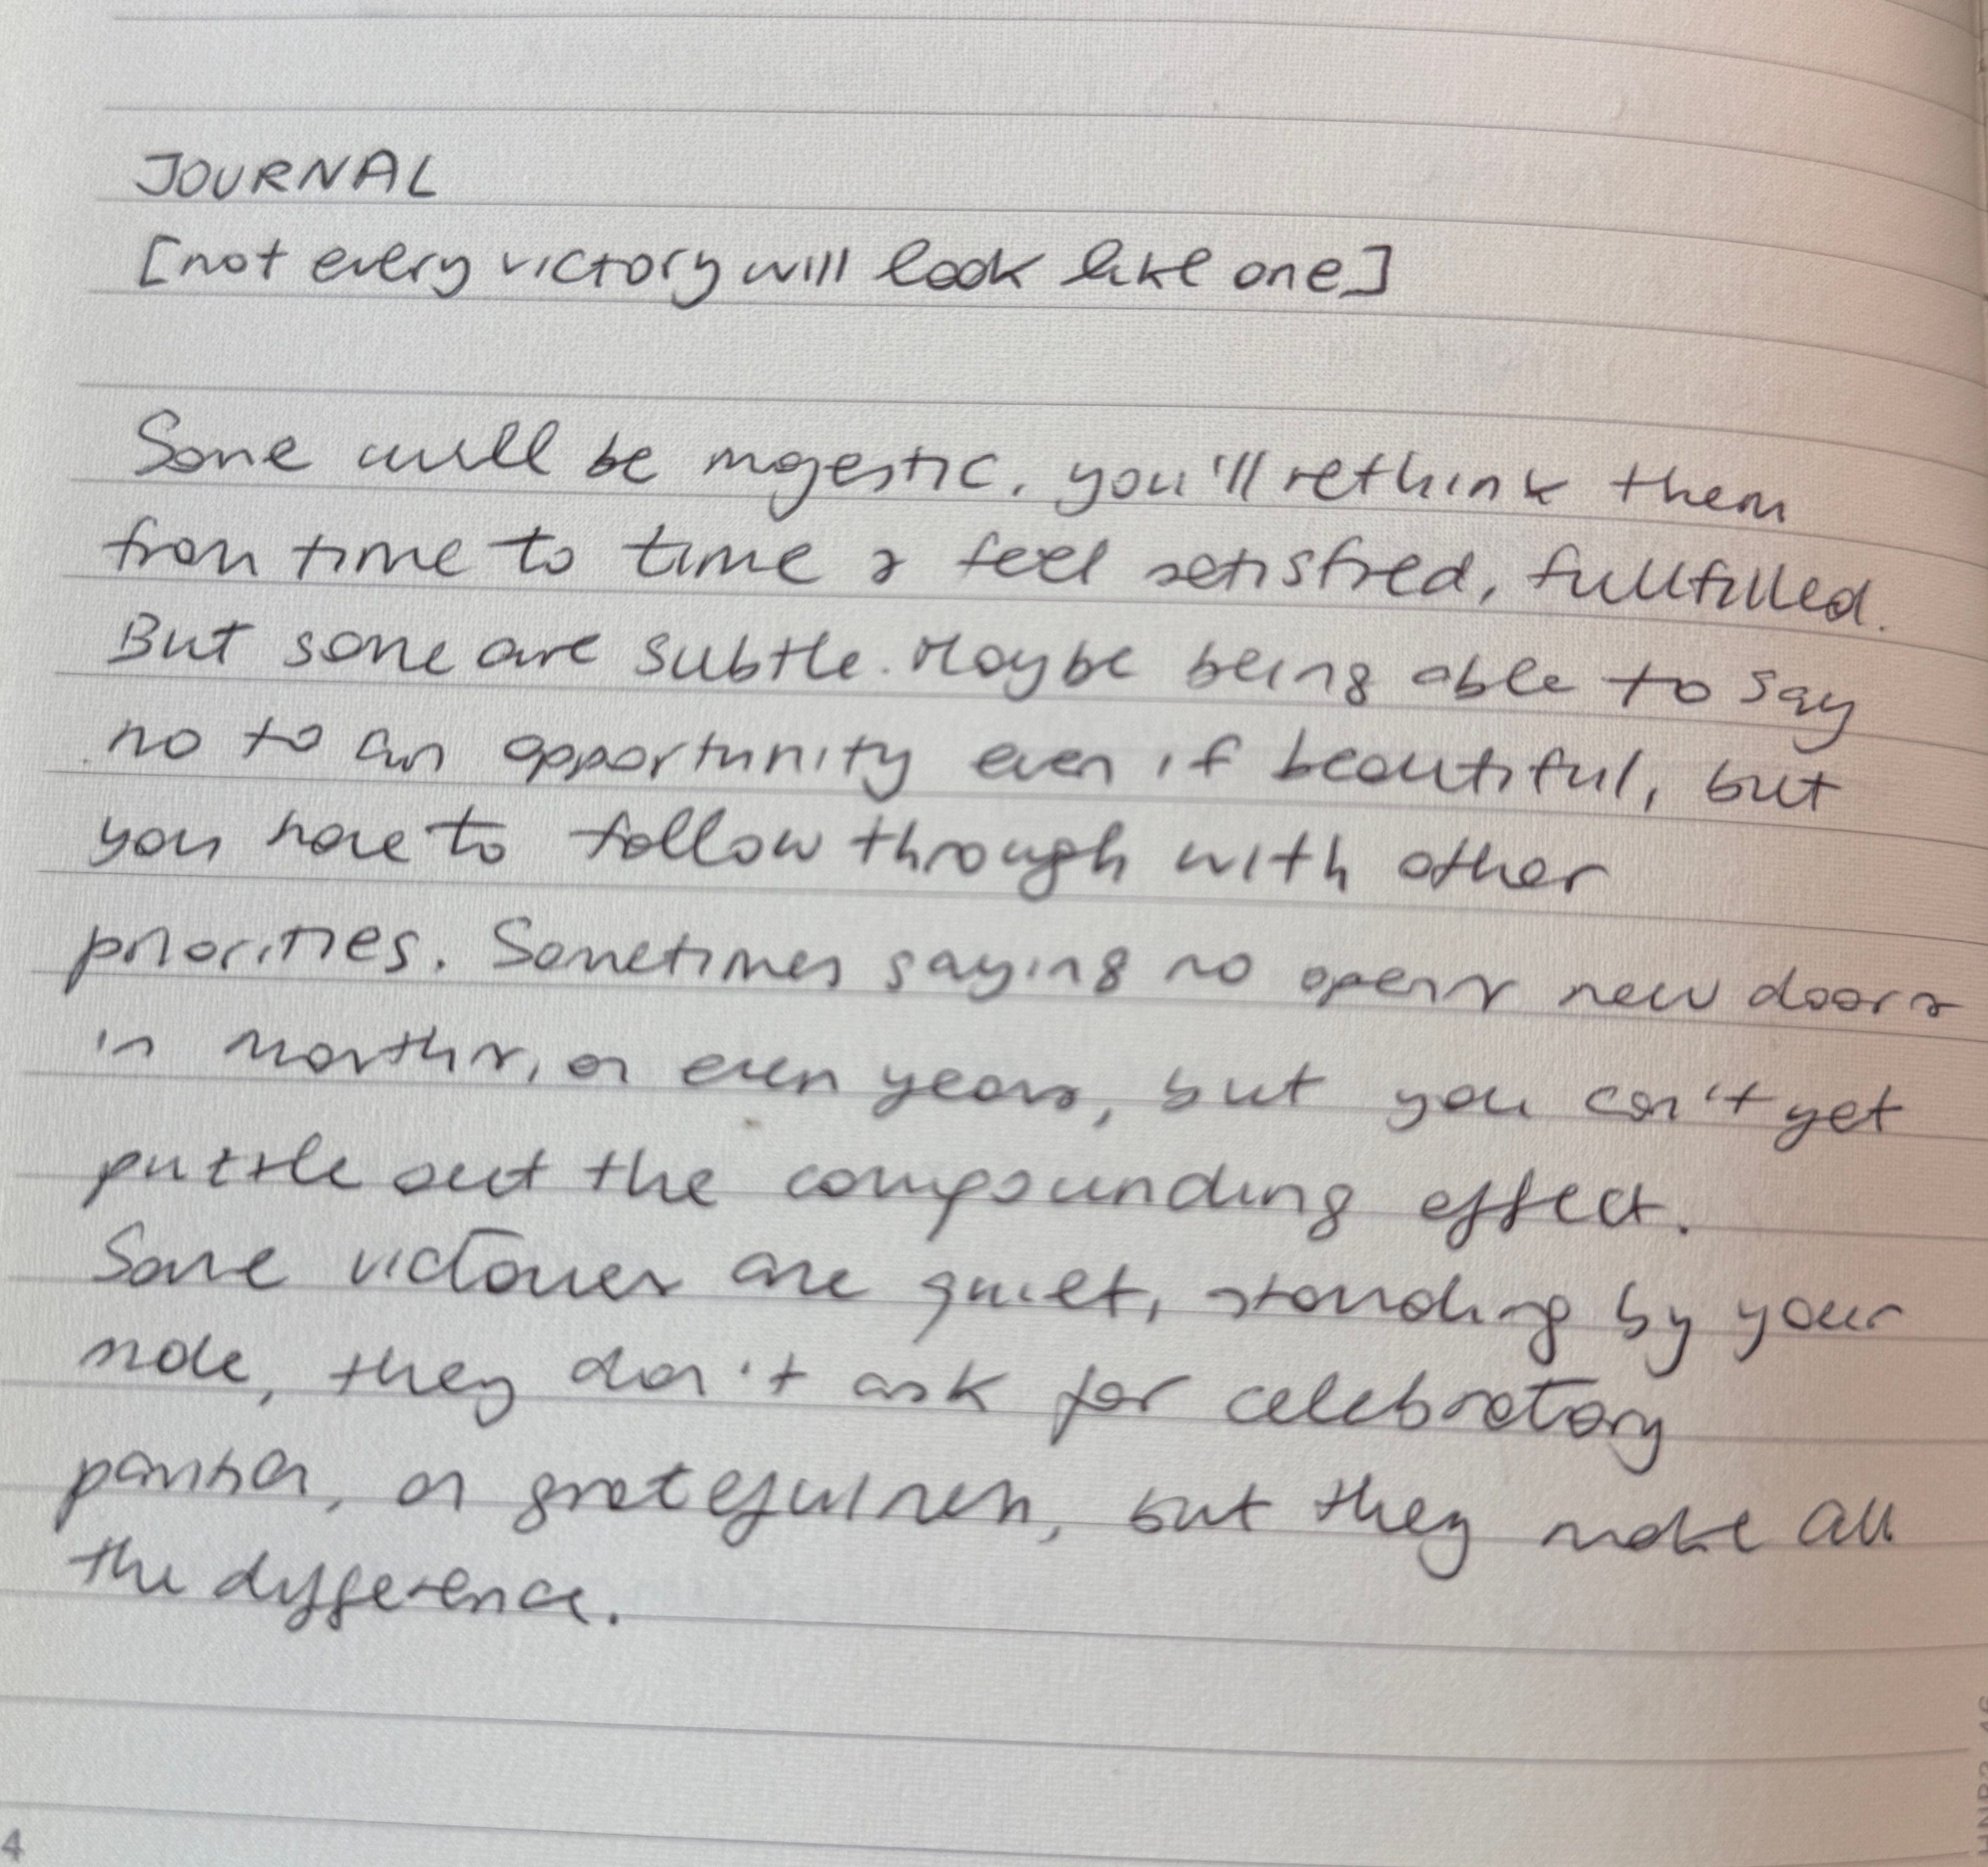 JOURNAL
[not every victory will look like one]
Some will be majestic, you'll rethink them
from time to time & feel satisfied, fullfilled.
But some are subtle. Maybe being able to say
no to an opportunity even if beautiful, but
you have to follow through with other
priorities. Sometimes saying no opens new doors
in months, or even years, but you can't yet
puzzle out the compounding effect.
Some victories are quiet, standing by your
side, they don't ask for celebratory
or gratefulness, but they make all
the difference.
4